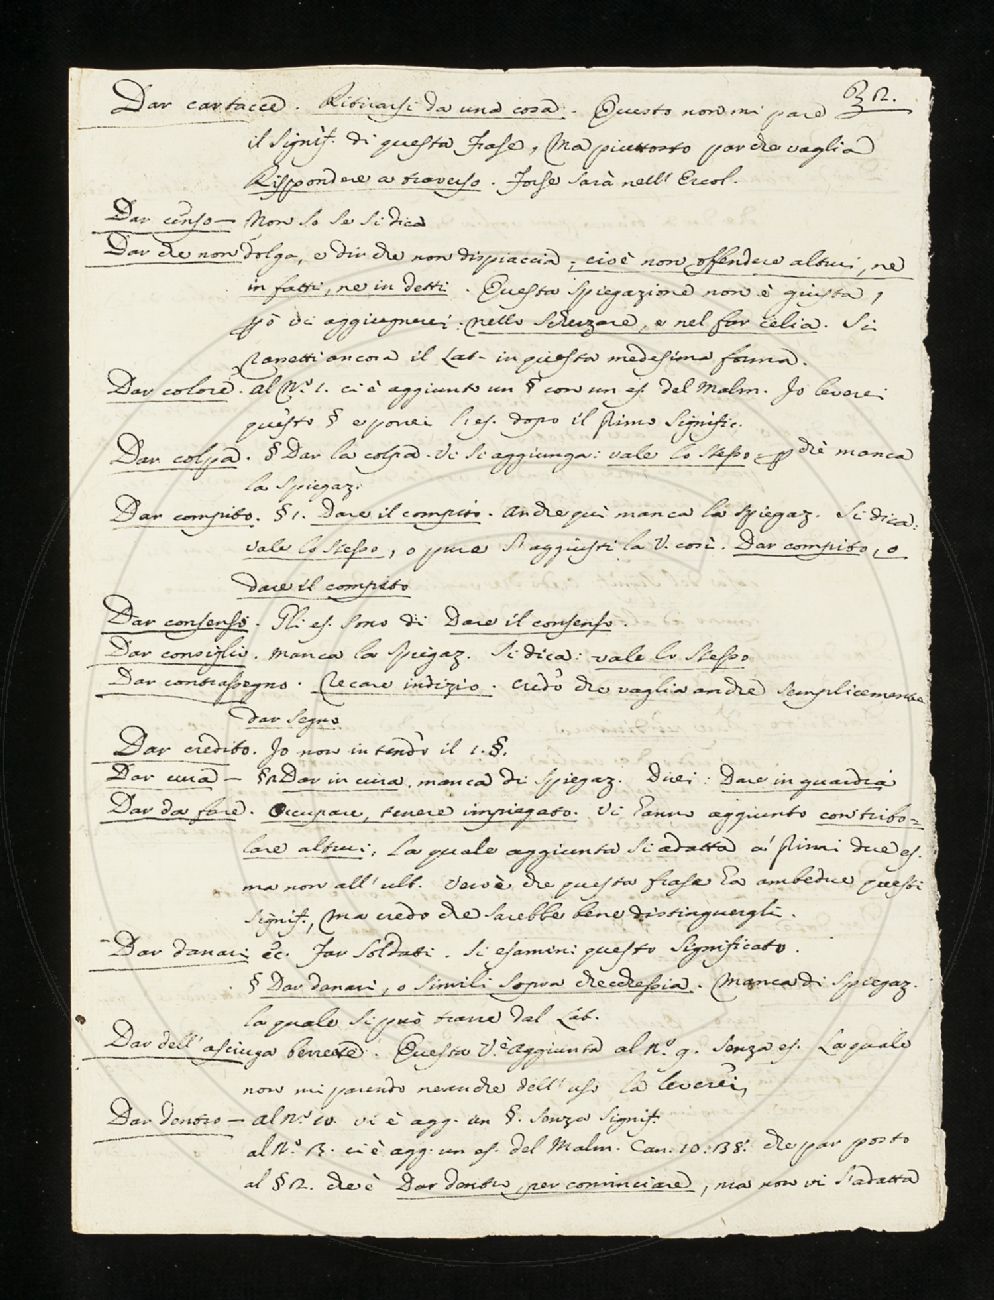 32.
Dar cartacce. Ritirarsi da una cosa. Questo non mi pare
il signif. di questa frase, Ma piuttosto par che vaglia
Rispondere a traverso. Forse sarà nell' Ercol.
Dar censo — Non so se si dica
Dar che non dolga, e dir che non dispiaccia, cioè non offendere altrui, nè
in fatti, ne in detti. Questa spiegazione non è giusta,
però vi aggiugnerei. nello scherzare, e nel far celia. Si
rassetti ancora il Lat. in questa medesima forma.
Dar colore. al N.º 1. ci è aggiunto un § con un es. del Malm. Io leverei
questo § e porrei l'es. dopo il primo signific.
Dar colpa. § Dar la colpa. Vi si aggiunga: vale lo stesso perchè manca
la spiegaz.
Dar compito. § 1. Dare il compito. anche quì manca la spiegaz. Si dica:
vale lo stesso, o pure s'aggiusti la V. così. Dar compito, o
dare il compito
Dar consenso. Gli es. sono di Dare il consenso.
Dar consiglio. manca la spiegaz. Si dica: vale lo stesso
Dar contrassegno. Recare indizio. credo che vaglia anche semplicemente
dar segno
Dar credito. Io non intendo il 1. §.
Dar cura — § 2. Dar in cura. manca di spiegaz. Direi: Dare in guardia
Dar da fare. Occupare, tenere impiegato. Vi hanno aggiunto contribo-
lare altrui, La quale aggiunta si adatta a' primi due es.
ma non all' ult. Vero è che questa frase ha ambedue questi
signif., Ma credo che sarebbe bene distinguergli.
Dar danari ec. Far soldati. Si esamini questo significato.
§ Dar danari, o simili sopra checchessia. Manca di spiegaz.
la quale si può trarre dal Lat.
Dar dell' asciuga bene. Questa V. è aggiunta al N.º 9. senza es. La quale
non mi parendo neanche dell' uso la leverei,
Dar dentro — al N.º 10. vi è agg. un §. senza signif.
al N.º 13. ci è agg. un es. del Malm. Can. 10. 38. che par posto
al § 2. che è Dar dentro, per cominciare, ma non vi s'adatta